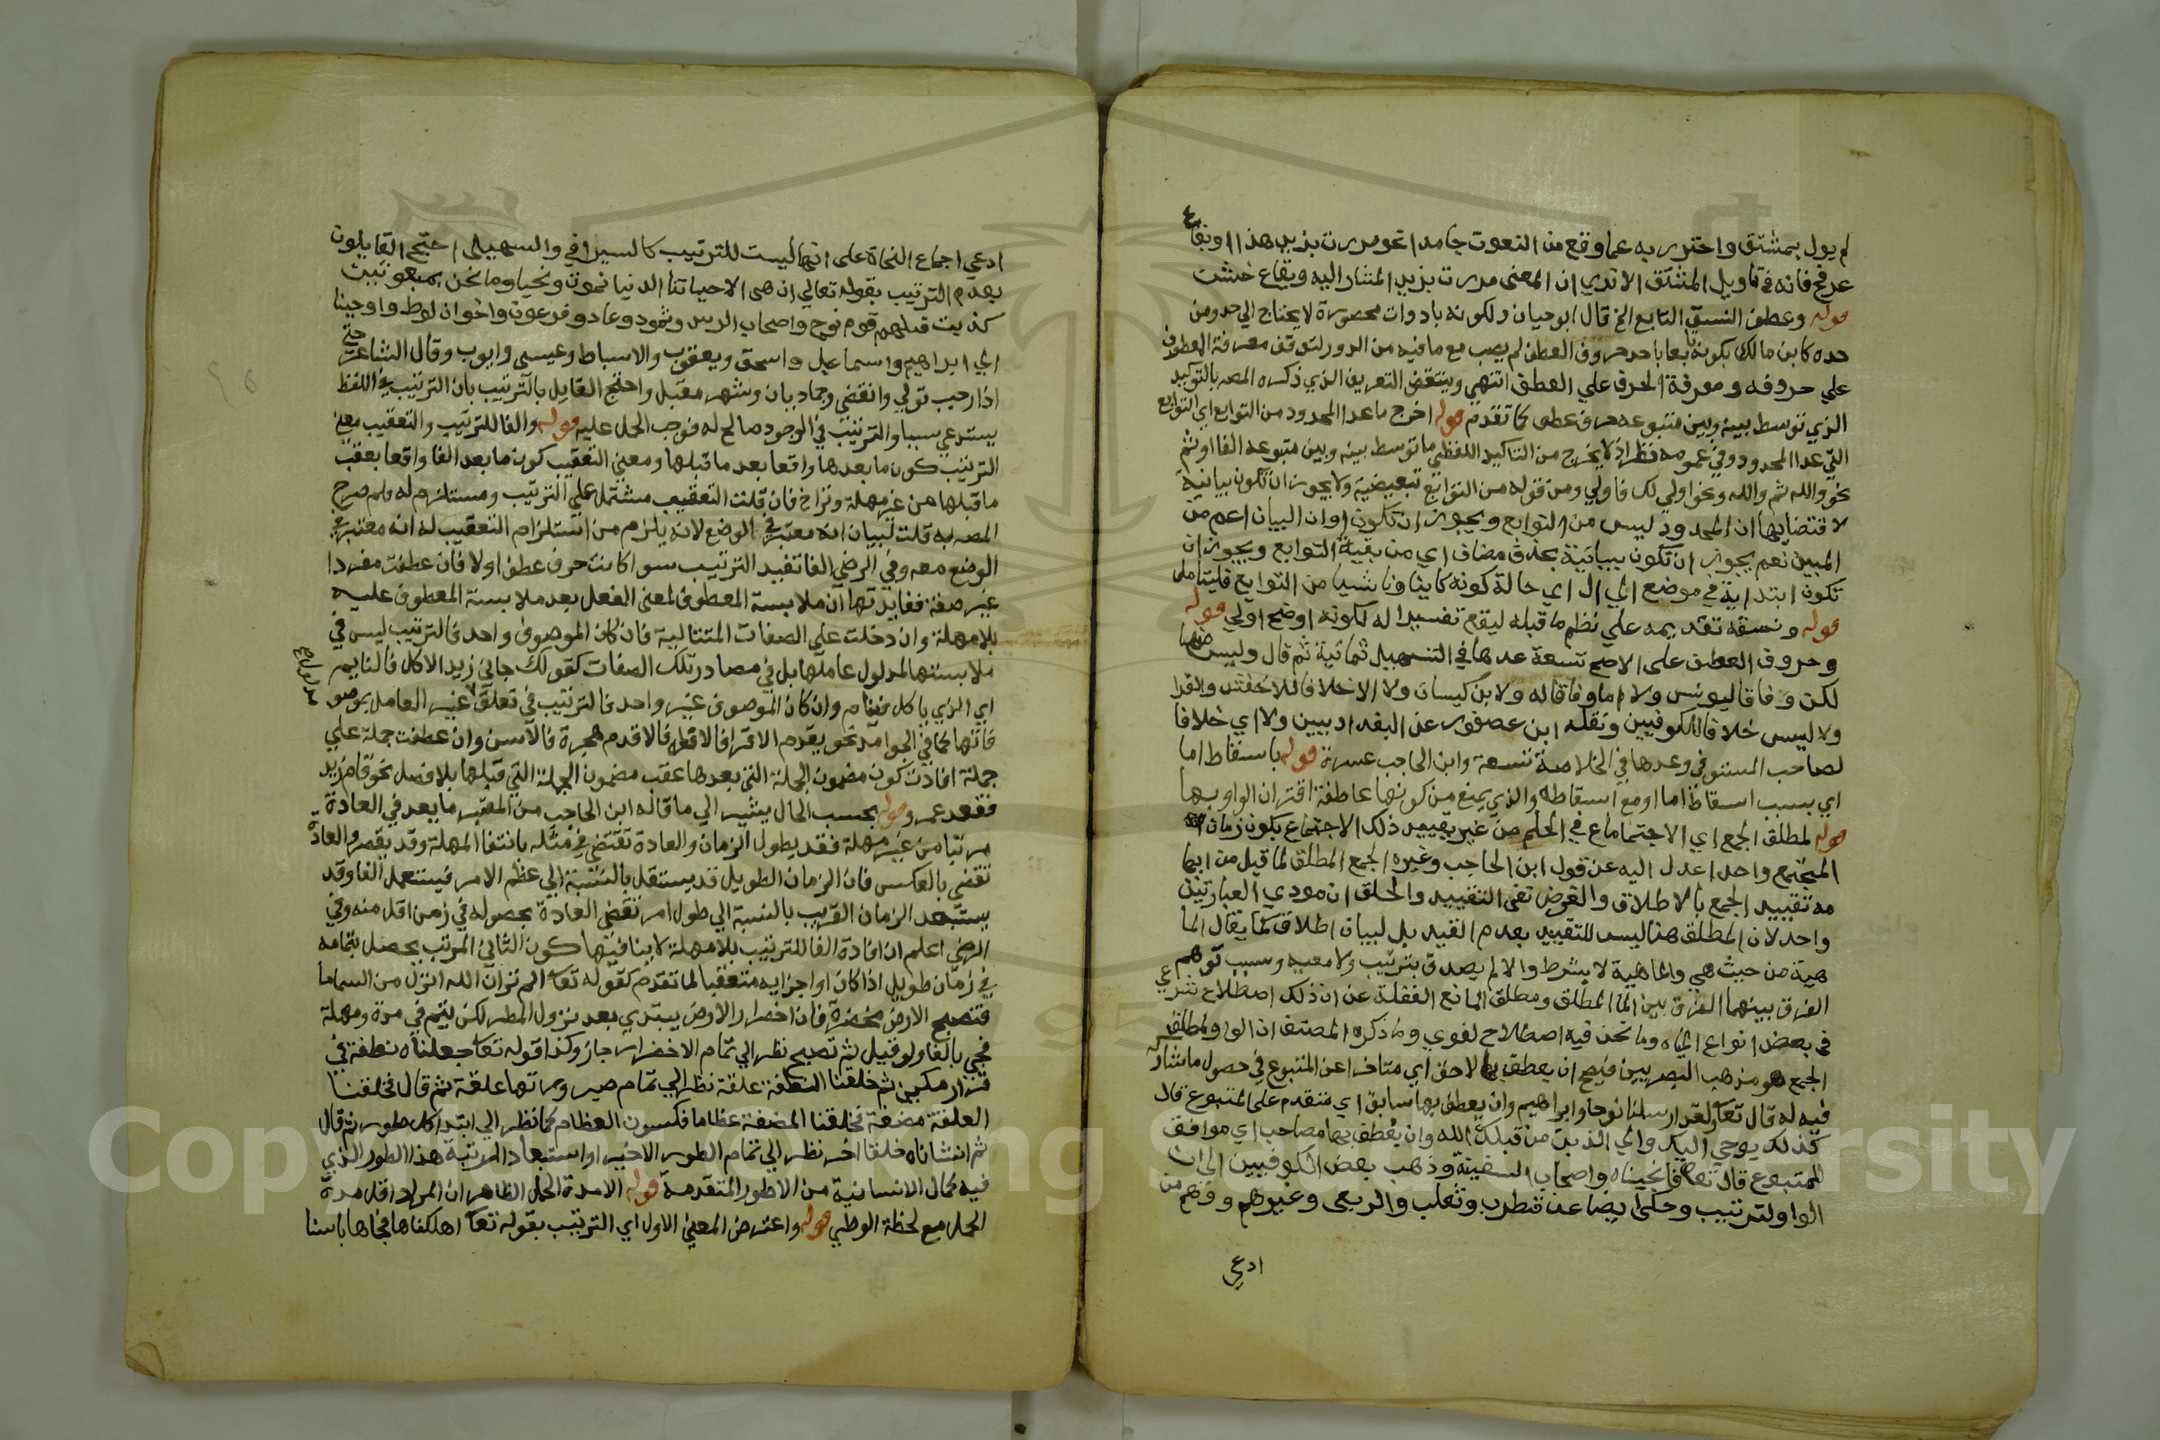 لم يول بمشتق واحترز به عما وقع من النعوت جامدا نحو مررت بزيد هذا او بقاع
عرفج فانه في تاويل المشتق الا تري ان المعنى مررت بزيد المشار اليه وبقاع خشت
قوله وعطف النسق التابع الخ قال ابو حيان ولكونه بادوات محصورة لا يحتاج الي حد ومن
حده كابن مالك بكونه تابعا باحد حروف العطف لم يصب مع ما فيه من الدور لتوقف معرفة المعطوف
علي حروفه ومعرفة الحرف علي العطف انتهي وينتقض التعريف الذي ذكره المصر بالتوكيد
الذي توسط بينه وبين متبوعه حرف عطف كما تقدم قوله اخرج ما عدا المحدود من التوابع اي التوابع
التي عدا المحدود وفي عمومه نظر اذ لا يخرج من التاكيد اللفظي ما توسط بينه وبين متبوعه الفا او ثم
نحو والله ثم والله ونحو اولي لك فاولي ومن قوله من التوابع تبعيضية ولا يجوز ان تكون بيانية
لاقتضائها ان المحدود ليس من التوابع ويجوز ان تكون اوان البيان اعم من
المبين نعم يجوز ان تكون بيانية بحذف مضاف اي من بقية التوابع ويجوز ان
تكون ابتدائية في موضع الحال اي حالة كونه كاينا وناشيا من التوابع فليتامل
قوله ونسقه تقديمه علي نظم ما قبله ليقع تفسيرا له لكونه اوضح اولي قوله
وحروف العطف على الاصح تسعة عدها في التسهيل ثمانية ثم قال وليس منها
لكن وفاقا ليونس ولا اما وفاقا له ولابن كيسان ولا الا خلافا للاخفش والفرا
ولا ليس خلافا للكوفيين ونقله ابن عصفور عن البغداديين ولا اي خلافا
لصاحب المستوفي وعدها في الخلاصة تسعة وابن الحاجب عشرة قوله باسقاط اما
اي بسبب اسقاط اما او مع اسقاطه والذي يمنع من كونها عاطفة اقتران الواو بها
قوله لمطلق الجمع اي الاجتماع في الحكم من غير تقييد ذلك الاجتماع بكون زمان
المجتمع واحدا عدل اليه عن قول ابن الحاجب وغيره الجمع المطلق لما قيل من ايها
مه تقييد الجمع بالاطلاق والغرض نفي التقييد والحلق ان مودي العبارتين
واحد لان المطلق هنا ليس للتقييد بعدم القيد بل لبيان اطلاق كما يقال الما
هية من حيث هي والماهية لا بشرط والا لم يصدق بترتيب ولا معيه وسبب توهم
الفرق بينهما الفرق بين الما المطلق ومطلق الما مع الغفلة عن ان ذلك اصطلاح شرعي
في بعض انواع المياه وما نحن فيه اصطلاح لغوي وما ذكره المصنف ان الواو لمطلق
الجمع هو مذهب البصريين فيصح ان يعطف بها لاحق اي متاخر عن المتبوع في حصول ما شارك
فيه له قال تعا لقد ارسلنا نوحا وابراهيم وان يعطف بها سابق اي متقدم على المتبوع قال
كذلك يوحي اليك والي الذين من قبلك الله وان يعطف بها مصاحب اي موافق
للمتبوع قال تعا فانجيناه واصحاب السفينة وذهب بعض الكوفيين الي ان
الواو لترتيب وحكى ايضا عن قطرب وثعلب والربعي وغيرهم ووهم من
ادعي
ادعي اجماع النحاة على انها ليست للترتيب كالسيرافي والسهيلي احتج القايلون
بعدم الترتيب بقوله تعالي ان هي الا حياتنا الدنيا نموت ونحيا وما نحن بمبعوثين
كذبت قبلهم قوم نوح واصحاب الرس وثمود وعاد وفرعون واخوان لوط واوحينا
الي ابراهيم واسماعيل واسحق ويعقوب والاسباط وعيسي وايوب وقال الشاعر حتى
اذا رجب تولي وانقضي وجماديان وشهر مقبل واحتج القايل بالترتيب بان الترتيب في اللفظ
يستدعي سببا والترتيب في الوجود صالح له فوجب الحمل عليه قوله والفا للترتيب والتعقيب معني
الترتيب كون ما بعدها واقعا بعد ما قبلها ومعني التعقيب كون ما بعد الفا واقعا بعقب
ما قبلها من غير مهلة وتراخ فان قلت التعقيب مشتمل علي الترتيب ومستلزم له ولم صرح
المصر به قلت لبيان انه معتبر في الوضع لانه يلزم من استلزام التعقيب له انه معتبر في
الوضع معه وفي الرضي الفا تفيد الترتيب سوا كانت حرف عطف اولا فان عطفت مفردا
غير صفة ففايدتها ان ملابسة المعطوف لمعنى الفعل بعد ملابسة المعطوف عليه
بلا مهلة وان دخلت علي الصفات المتتالية فان كان الموصوف واحد فالترتيب ليس في
ملابستها لمدلول عاملها بل في مصادر تلك الصفات كقولك جاني زيد الاكل فالنايم
اي الذي ياكل فينام وان كان الموصوف غير واحد فالترتيب في تعلق غير العامل بموصو
مدلول
فاتها كما في الجوامد نحو يقدم الاقرا فالافقه فالاقدم هجرة فالاسن وان عطفت جملة علي
جملة افادت كون مضمون الجملة التي بعدها عقب مضمون الجملة التي قبلها بلا فصل نحو قام زيد
فقعد عمرو قوله بحسب الحال يشير الي ما قاله ابن الحاجب من المعتبر ما يعد في العادة
مرتبا من غير مهلة فقد يطول الزمان والعادة تقتضي في مثله بانتفا المهلة وقد يقصر والعادة
تقضي بالعكس فان الزمان الطويل قد يستقل بالنسبة الي عظم الامر فيستعمل الفا وقد
يستبعد الزمان القريب بالنسبة الي طول امر تقضي العادة بحصوله في زمن اقل منه وفي
الرضي اعلم ان افادة الفا للترتيب بلا مهلة لا ينافيها كون الثاني المرتب يحصل بتمامه
في زمان طويل اذا كان اول اجزايه متعقبا لما تقدم كقوله تعا الم تر ان الله انزل من السما ما
فتصبح الارض مخضرة فان اخضرار الارض يبتدي بعد نزول المطر لكن يتم في مدة ومهلة
فجي بالفا ولو قيل ثم تصبح نظرا الي تمام الاخضرار جاز وكذا قوله تعا جعلناه نطفة في
قرار مكين ثم خلقنا النطفة علقة نظرا الي تمام صيرورتها علقة ثم قال فخلقنا
العلقة مضغة فخلقنا المضغة عظاما فكسونا العظام كما نظر الي ابتدا كل طور ثم قال
ثم انشاناه خلقا اخر نظرا الي تمام الطور الاخير او استبعاد المرتبة هذا الطور الذي
فيه كمال الانسانية من الاطوار المتقدمة قوله الا مدة الحمل الظاهر ان المراد اقل مدة
الحمل مع لحظة الوطي قوله واعترض المعنى الاول اي الترتيب بقوله تعا اهلكناها فجاها باسنا
Copyright © King Saud University